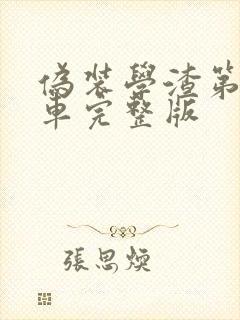 偽裝學渣第
車完整版
張思煐